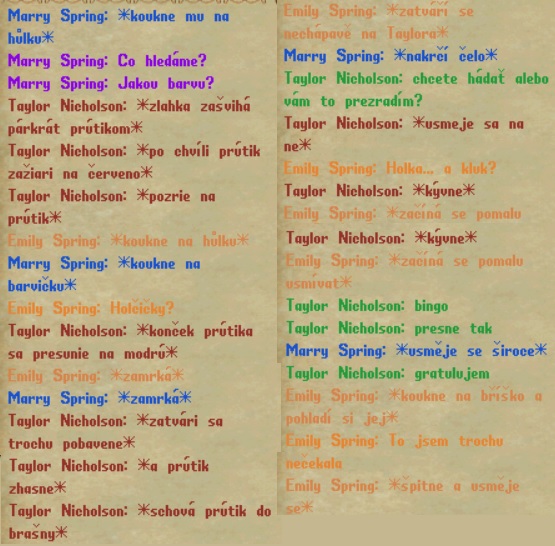 Marry Spring: *koukne mu na
hůlku*
Marry Spring: Co hledáme?
Marry Spring: Jakou barvu?
Taylor Nicholson: *zlahka zašvihá
párkrát prútikom*
Taylor Nicholson: *po chvíli prútik
zažiari na červeno*
Taylor Nicholson: *pozrie na
prútik*
Emily Spring: *koukne na hůlku*
Marry Spring: *koukne na
barvičku*
Emily Spring: Holčičky?
Taylor Nicholson: *konček prútika
sa presunie na modrú*
Emily Spring: *zamrká*
Marry Spring: *zamrká*
Taylor Nicholson: *zatvári sa
trochu pobavene*
Taylor Nicholson: *a prútik
zhasne*
Taylor Nicholson: *schová prútik do
brašny*
Emily Spring: *zatváří se
nechápavě na Taylora*
Marry Spring: *nakrčí čelo*
Taylor Nicholson: chcete hádať alebo
vám to prezradím?
Taylor Nicholson: *usmeje sa na
ne*
Emily Spring: Holka... a kluk?
Taylor Nicholson: *kývne*
Emily Spring: *začíná se pomalu
Taylor Nicholson: *kývne*
Emily Spring: *začíná se pomalu
usmívat*
Taylor Nicholson: bingo
Taylor Nicholson: presne tak
Marry Spring: *usměje se široce*
Taylor Nicholson: gratulujem
Emily Spring: *koukne na bříško a
pohladí si jej*
Emily Spring: To jsem trochu
nečekala
Emily Spring: *špitne a usměje
se*